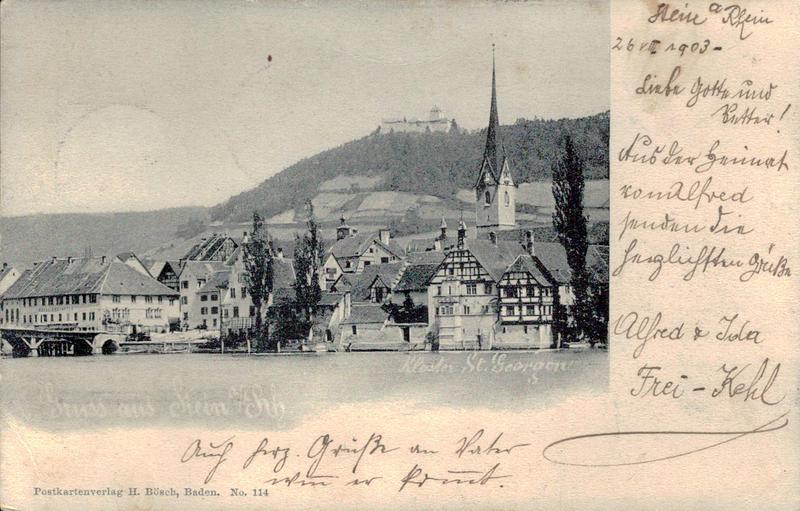 Stein a Rhein
26 VIII 1903 -
Liebe Gotte und
Vetter!
Aus der Heimat
von Alfred
senden die
herzlichsten Grüße
Alfred & Ida
Frei - Kehl
Kloster St. Georgen
Gruss aus Stein a/Rh.
Auch herz. Grüße an Vater
wenn er kommt.
Postkartenverlag H. Bösch, Baden. No. 114